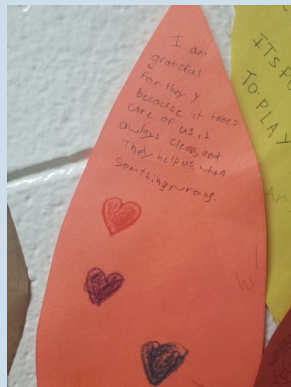 I am
grateful
for they Y
because it takes
care of us it
awlays clean, and
They help us when
Somthing wrong.
ITS FO
TO PLAY
An